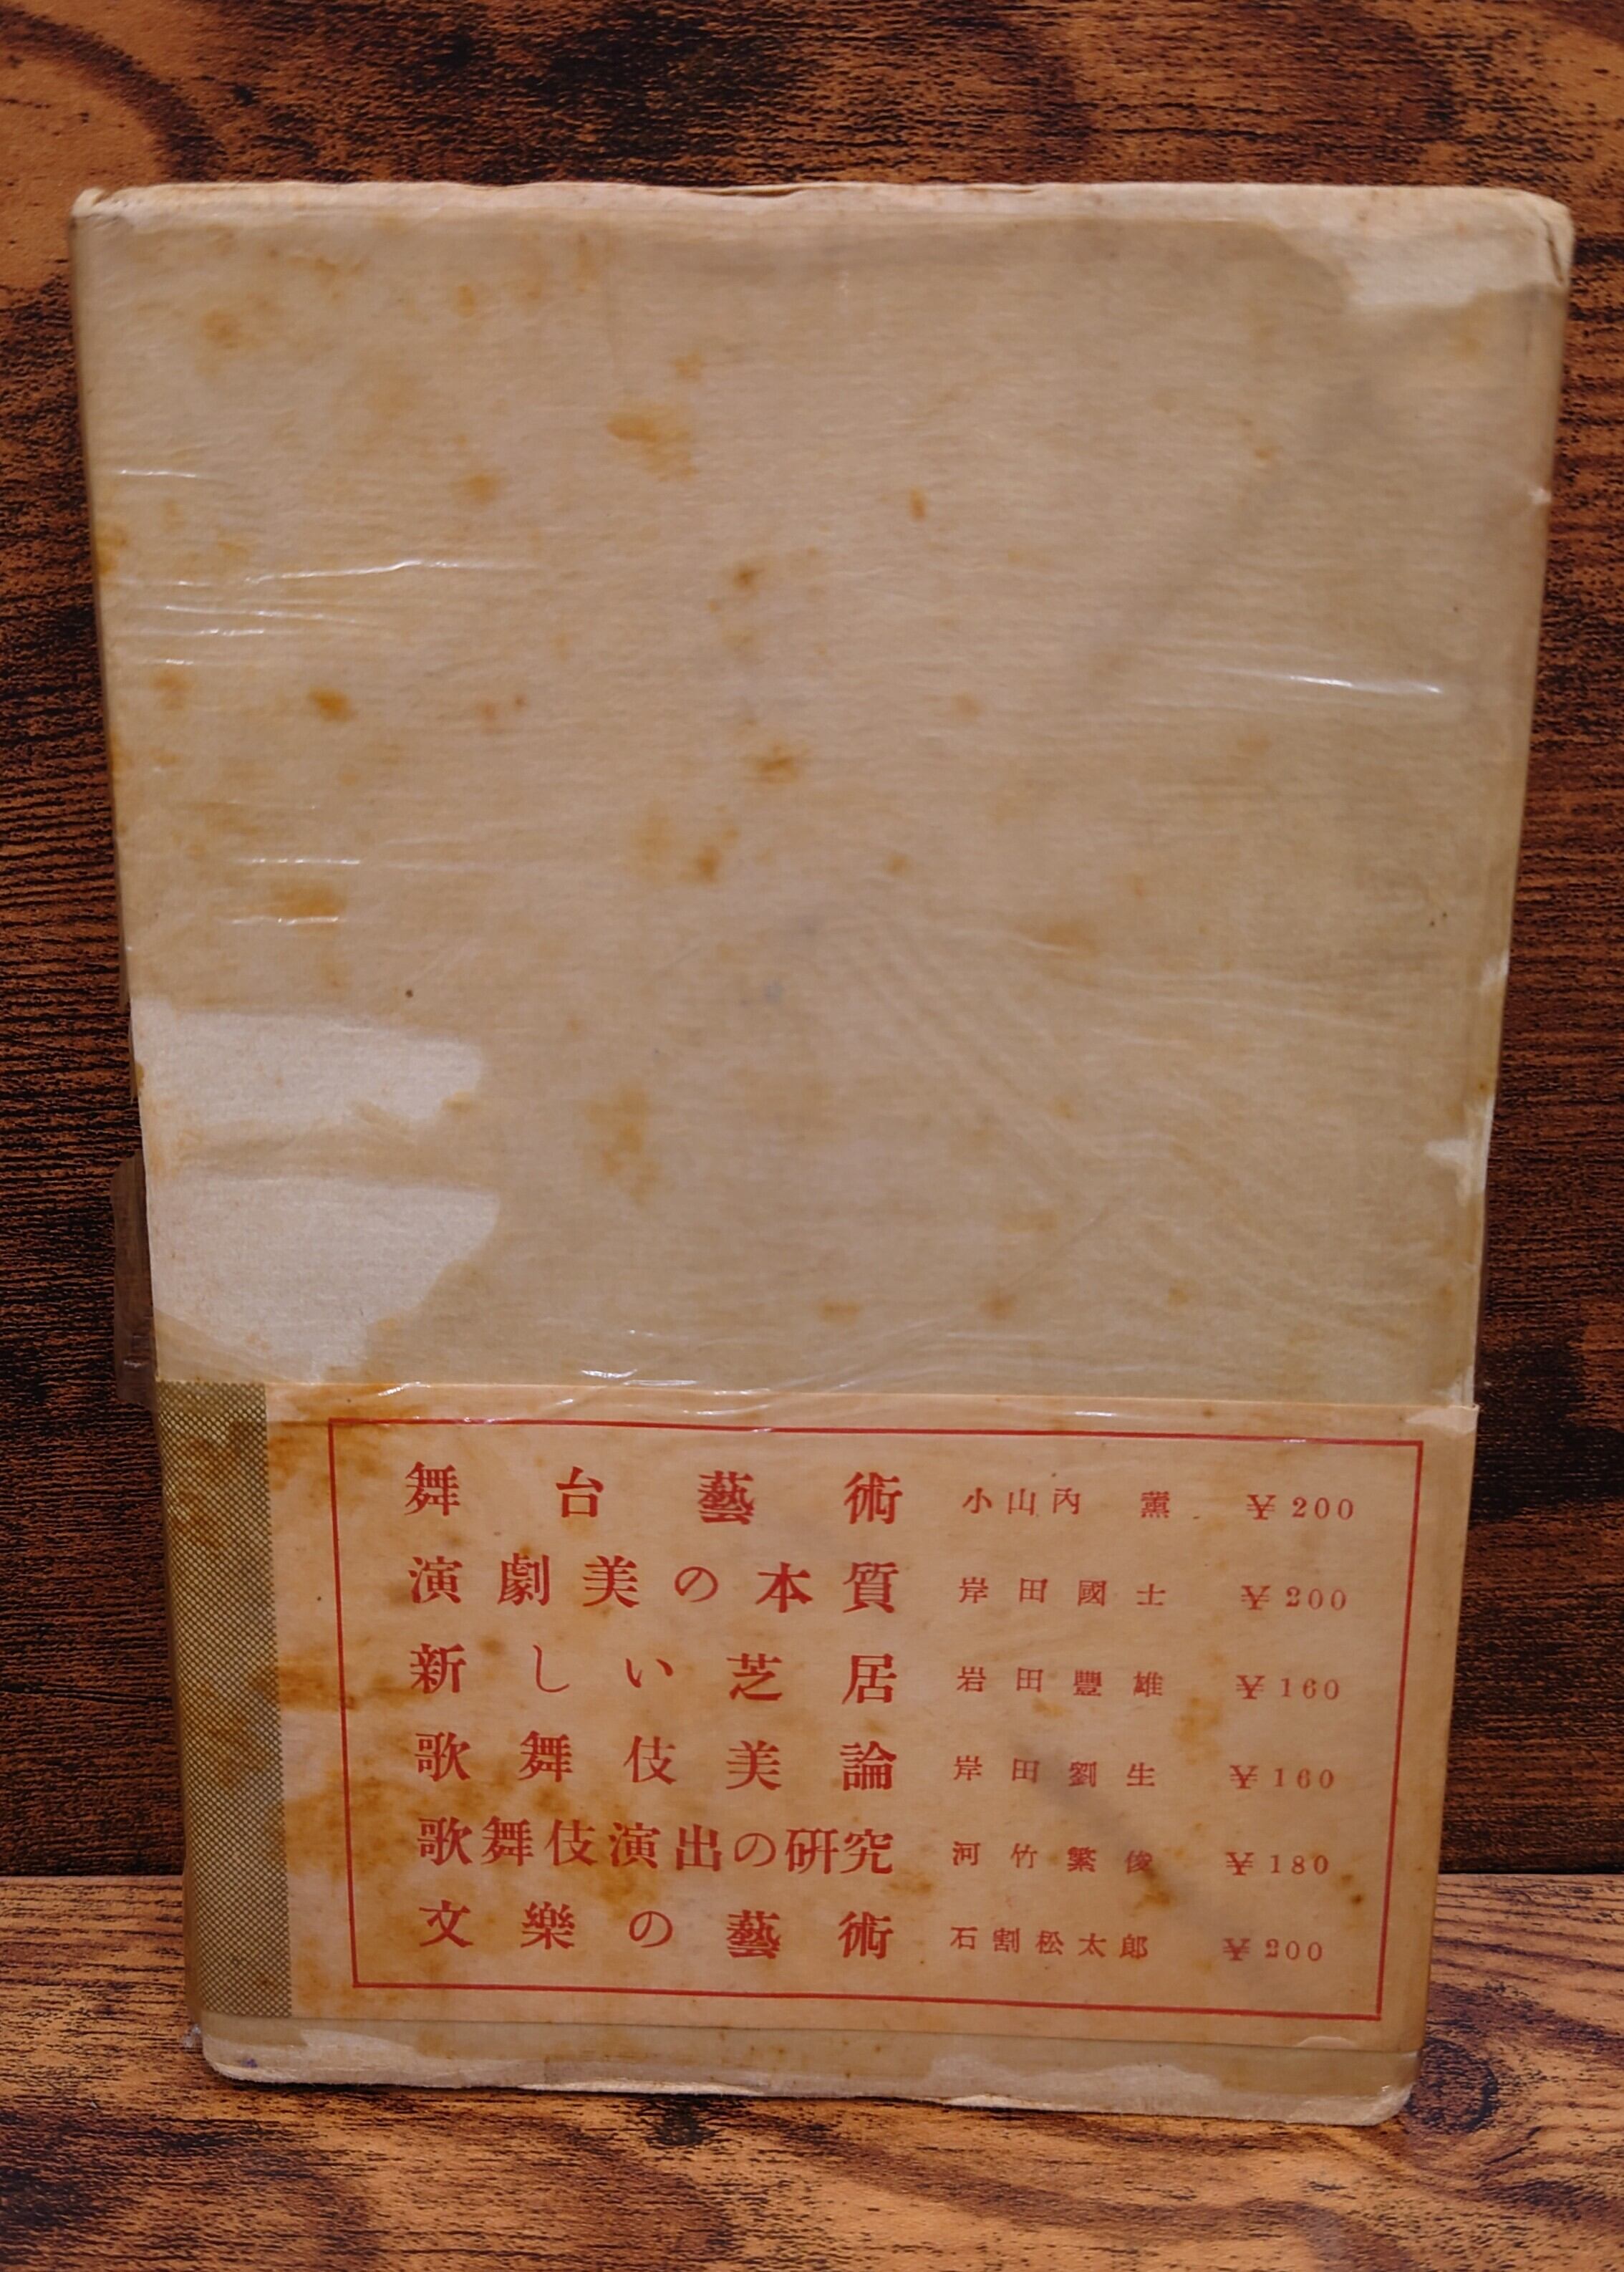 舞台藝術 小山內 薰 ¥200
演劇美の本質 岸田國士 ¥200
新しい芝居 岩田豐雄 ¥160
歌舞伎美論 岸田劉生 ¥160
歌舞伎演出の研究 河竹繁俊 ¥180
文樂の藝術 石割松太郎 ¥200